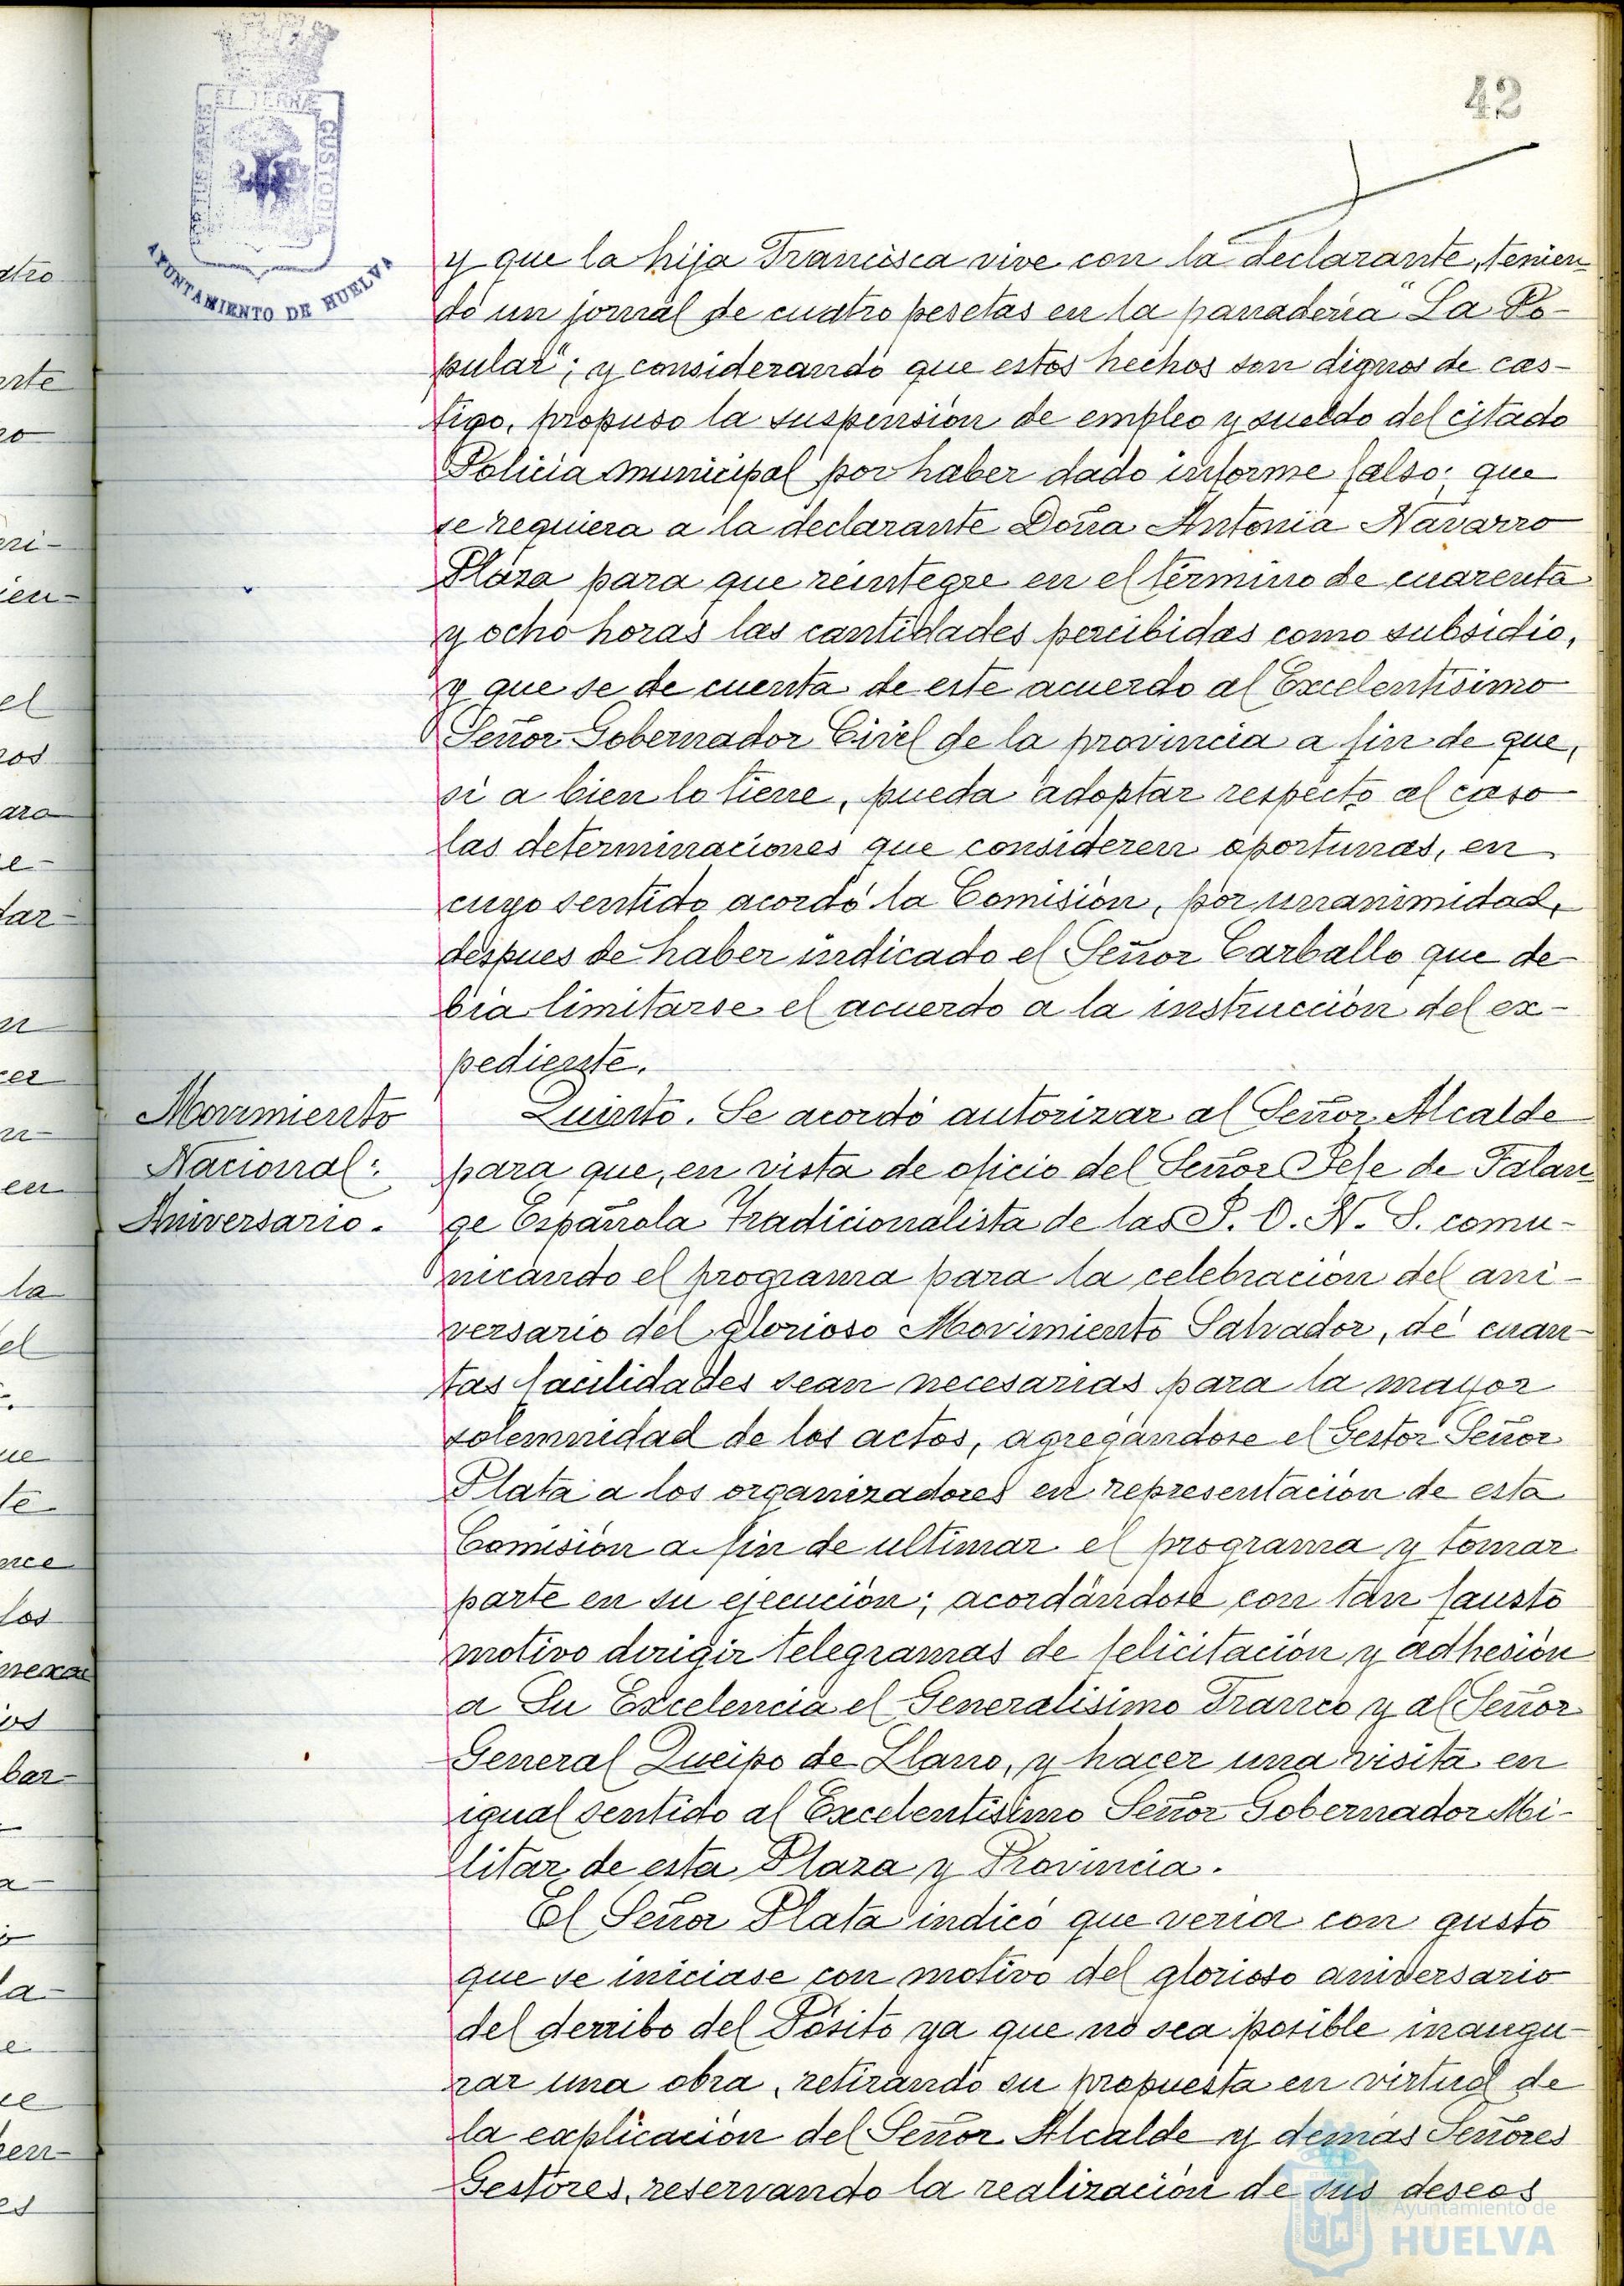 42
AYUNTAMIENTO DE HUELVA
y que la hija Francisca vive con la declarante, tenien-
do un jornal de cuatro pesetas en la panadería "La Po-
pular"; y considerando que estos hechos son dignos de cas-
tigo, propuso la suspensión de empleo y sueldo del citado
Policía municipal por haber dado informe falso; que
se requiera a la declarante Doña Antonia Navarro
Plaza para que reintegre en el término de cuarenta
y ocho horas las cantidades percibidas como subsidio,
y que se de cuenta de este acuerdo al Excelentísimo
Señor Gobernador Civil de la provincia a fin de que,
si a bien lo tiene, pueda adoptar respecto al caso
las determinaciones que consideren oportunas, en
cuyo sentido acordó la Comisión, por unanimidad,
despues de haber indicado el Señor Carballo que de-
bía limitarse el acuerdo a la instrucción del ex-
pediente.
Movimiento
Nacional:
Aniversario.
Quinto. Se acordó autorizar al Señor Alcalde
para que, en vista de oficio del Señor Jefe de Falan-
ge Española Tradicionalista de las J. O. N. S. comu-
nicando el programa para la celebración del ani-
versario del glorioso Movimiento Salvador, dé cuan-
tas facilidades sean necesarias para la mayor
solemnidad de los actos, agregándose el Gestor Señor
Plata a los organizadores en representación de esta
Comisión a fin de ultimar el programa y tomar
parte en su ejecución; acordándose con tan fausto
motivo dirigir telegramas de felicitación y adhesión
a Su Excelencia el Generalísimo Franco y al Señor
General Queipo de Llano, y hacer una visita en
igual sentido al Excelentísimo Señor Gobernador Mi-
litar de esta Plaza y Provincia.
El Señor Plata indicó que vería con gusto
que se iniciase con motivo del glorioso aniversario
del derribo del Pósito ya que no sea posible inaugu-
rar una obra, retirando su propuesta en virtud de
la explicación del Señor Alcalde y demás Señores
Gestores, reservando la realización de sus deseos
Ayuntamiento de
HUELVA